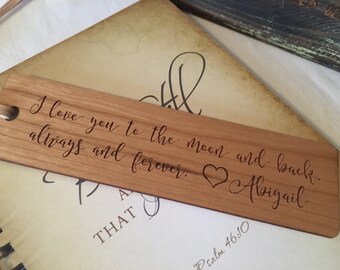 I love you to the moon and back.
always and forever. ♡ Abigail
A
THAT
Psalm 46:10